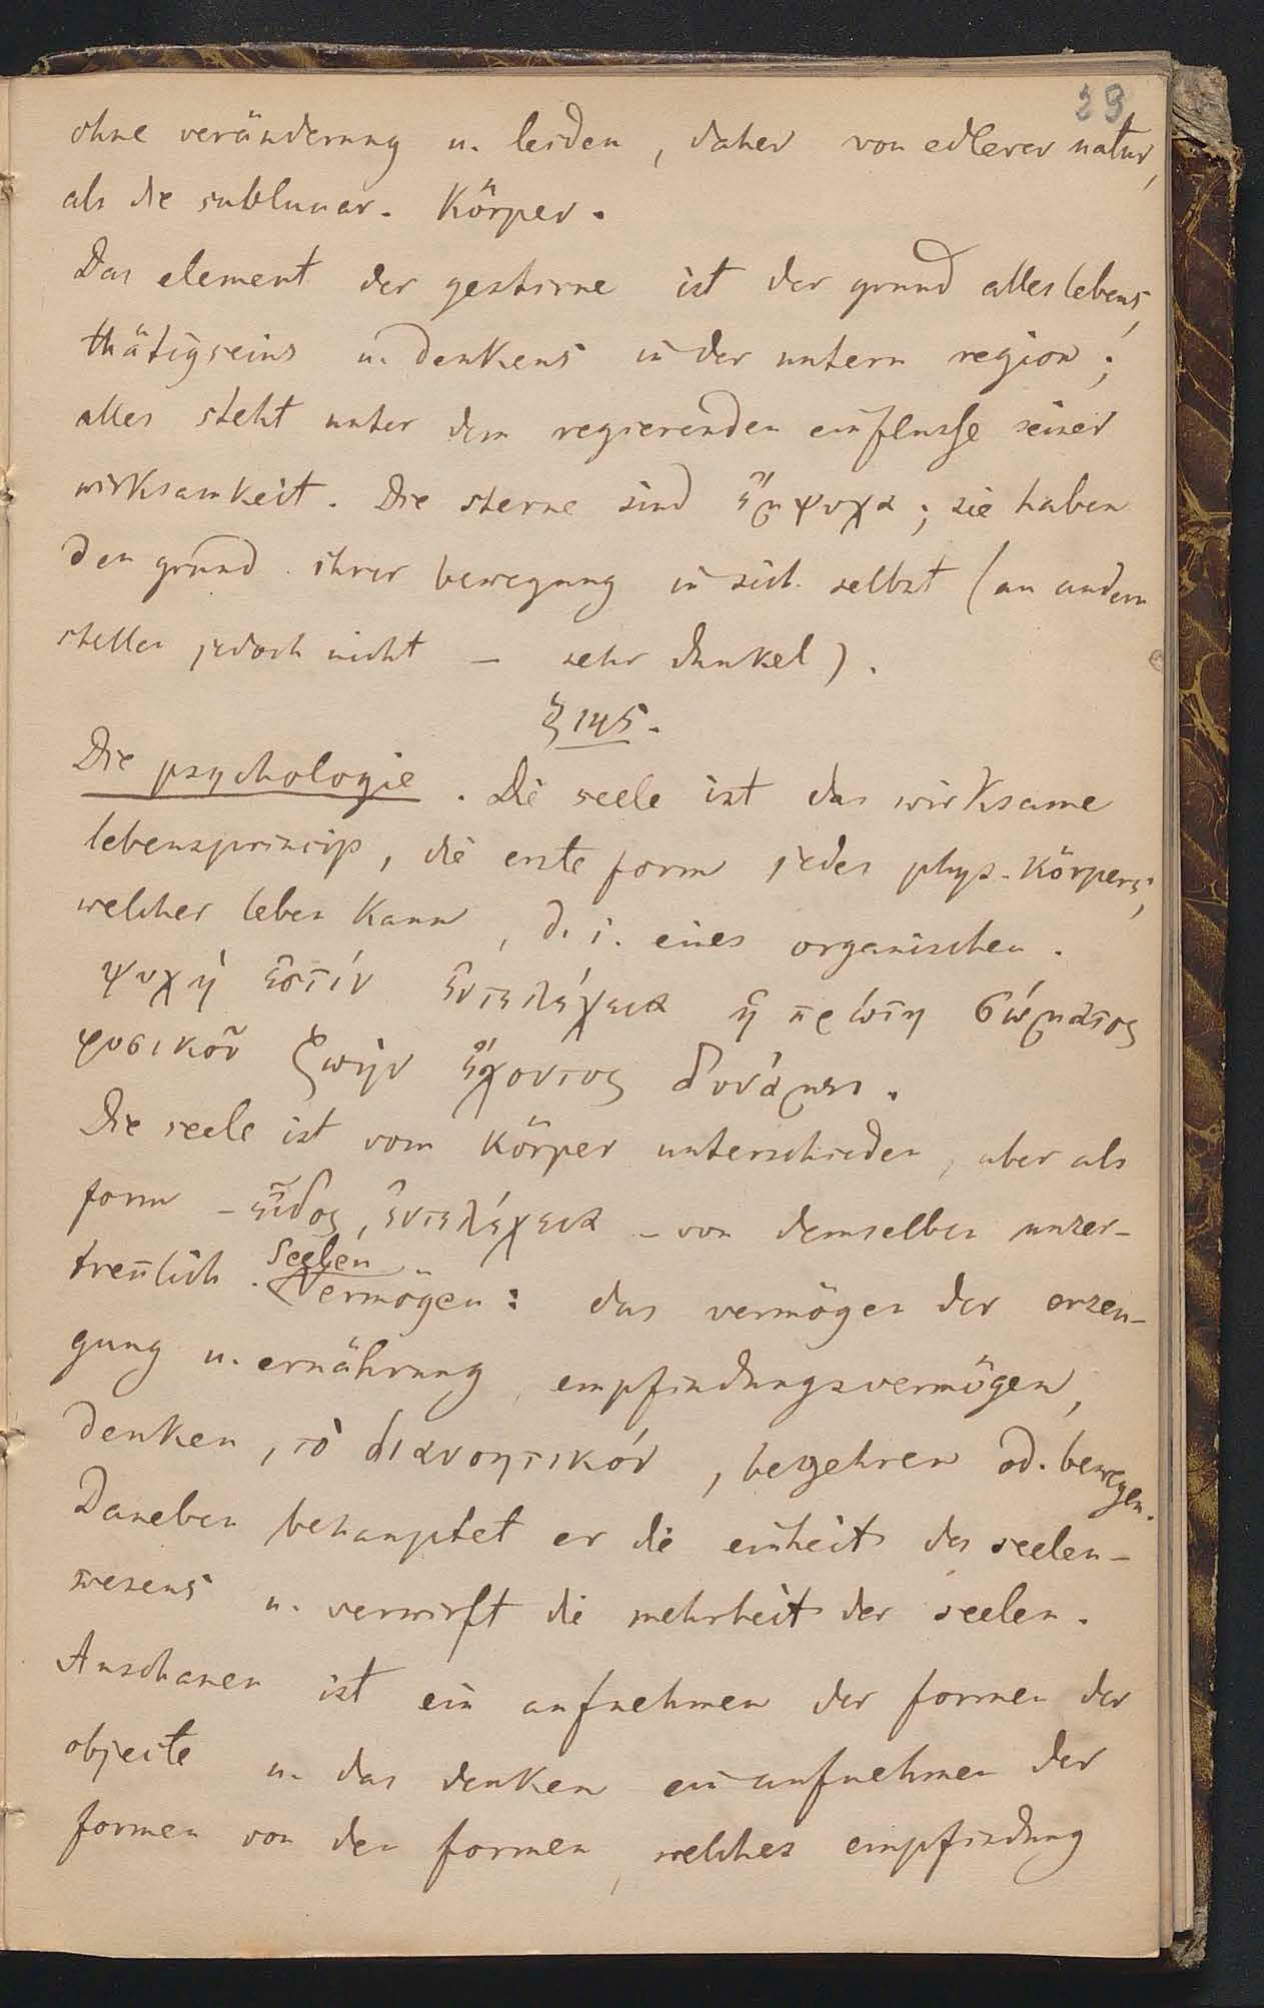 29
ohne veränderung u. leiden, daher von edlerer natur,
als die sublunar. Körper.
Das element der gestirne ist der grund alles lebens,
thätigseins u. denkens in der untern region;
alles steht unter dem regierenden einflusse seiner
wirksamkeit. Die sterne sind ἔμψυχα; sie haben
den grund ihrer bewegung in sich selbst (an andern
stellen jedoch nicht – sehr dunkel).
§ 145.
Die psychologie. Die seele ist das wirksame
lebensprincip, die erste form jedes phys. Körpers,
welcher leben kann, d. i. eines organischen.
ψυχή ἐστίν ἐντελέχεια ἡ πρώτη σώματος
φυσικοῦ ζωὴν ἔχοντος δυνάμει.
Die seele ist vom Körper unterschieden, aber als
form – εἶδος, ἐντελέχεια – von demselben unzer-
treñlich. Seelen
Vermögen: das vermögen der erzeu-
gung u. ernährung, empfindungsvermögen,
denken, τὸ διανοητικόν, begehren od. bewegen.
Daneben behauptet er die einheit des seelen-
wesens u. verwirft die mehrheit der seelen.
Anschauen ist ein aufnehmen der formen der
objecte u. das denken ein aufnehmen der
formen von den formen, welches empfindung